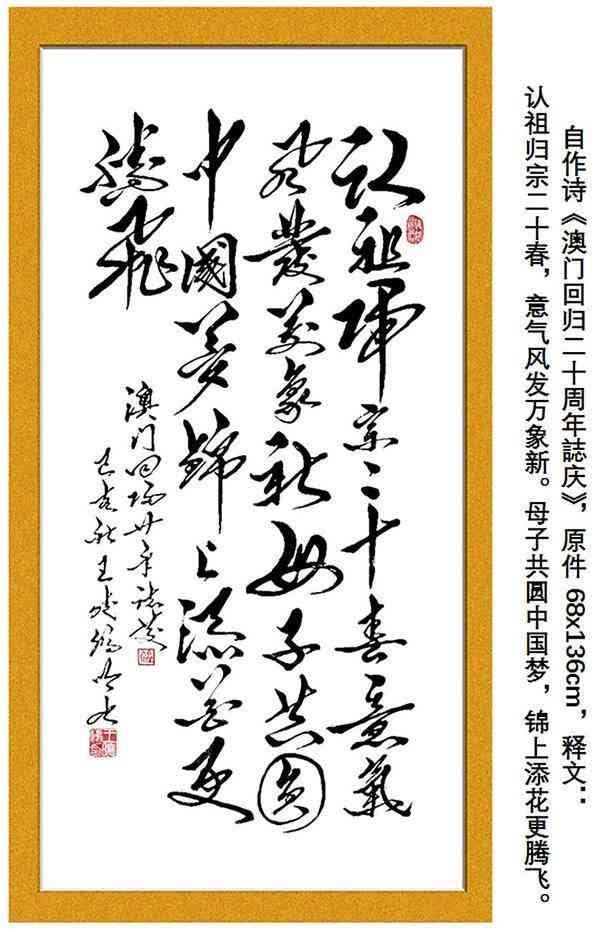 自作诗《澳门回归二十周年誌庆》，原件 68x136cm，释文：
认祖归宗二十春，意气风发万象新。母子共圆中国梦，锦上添花更腾飞。
認祖歸宗二十春意氣
風發萬象新母子共圓
中國夢錦上添花更
騰飛
澳門回歸廿年誌慶
己亥秋王